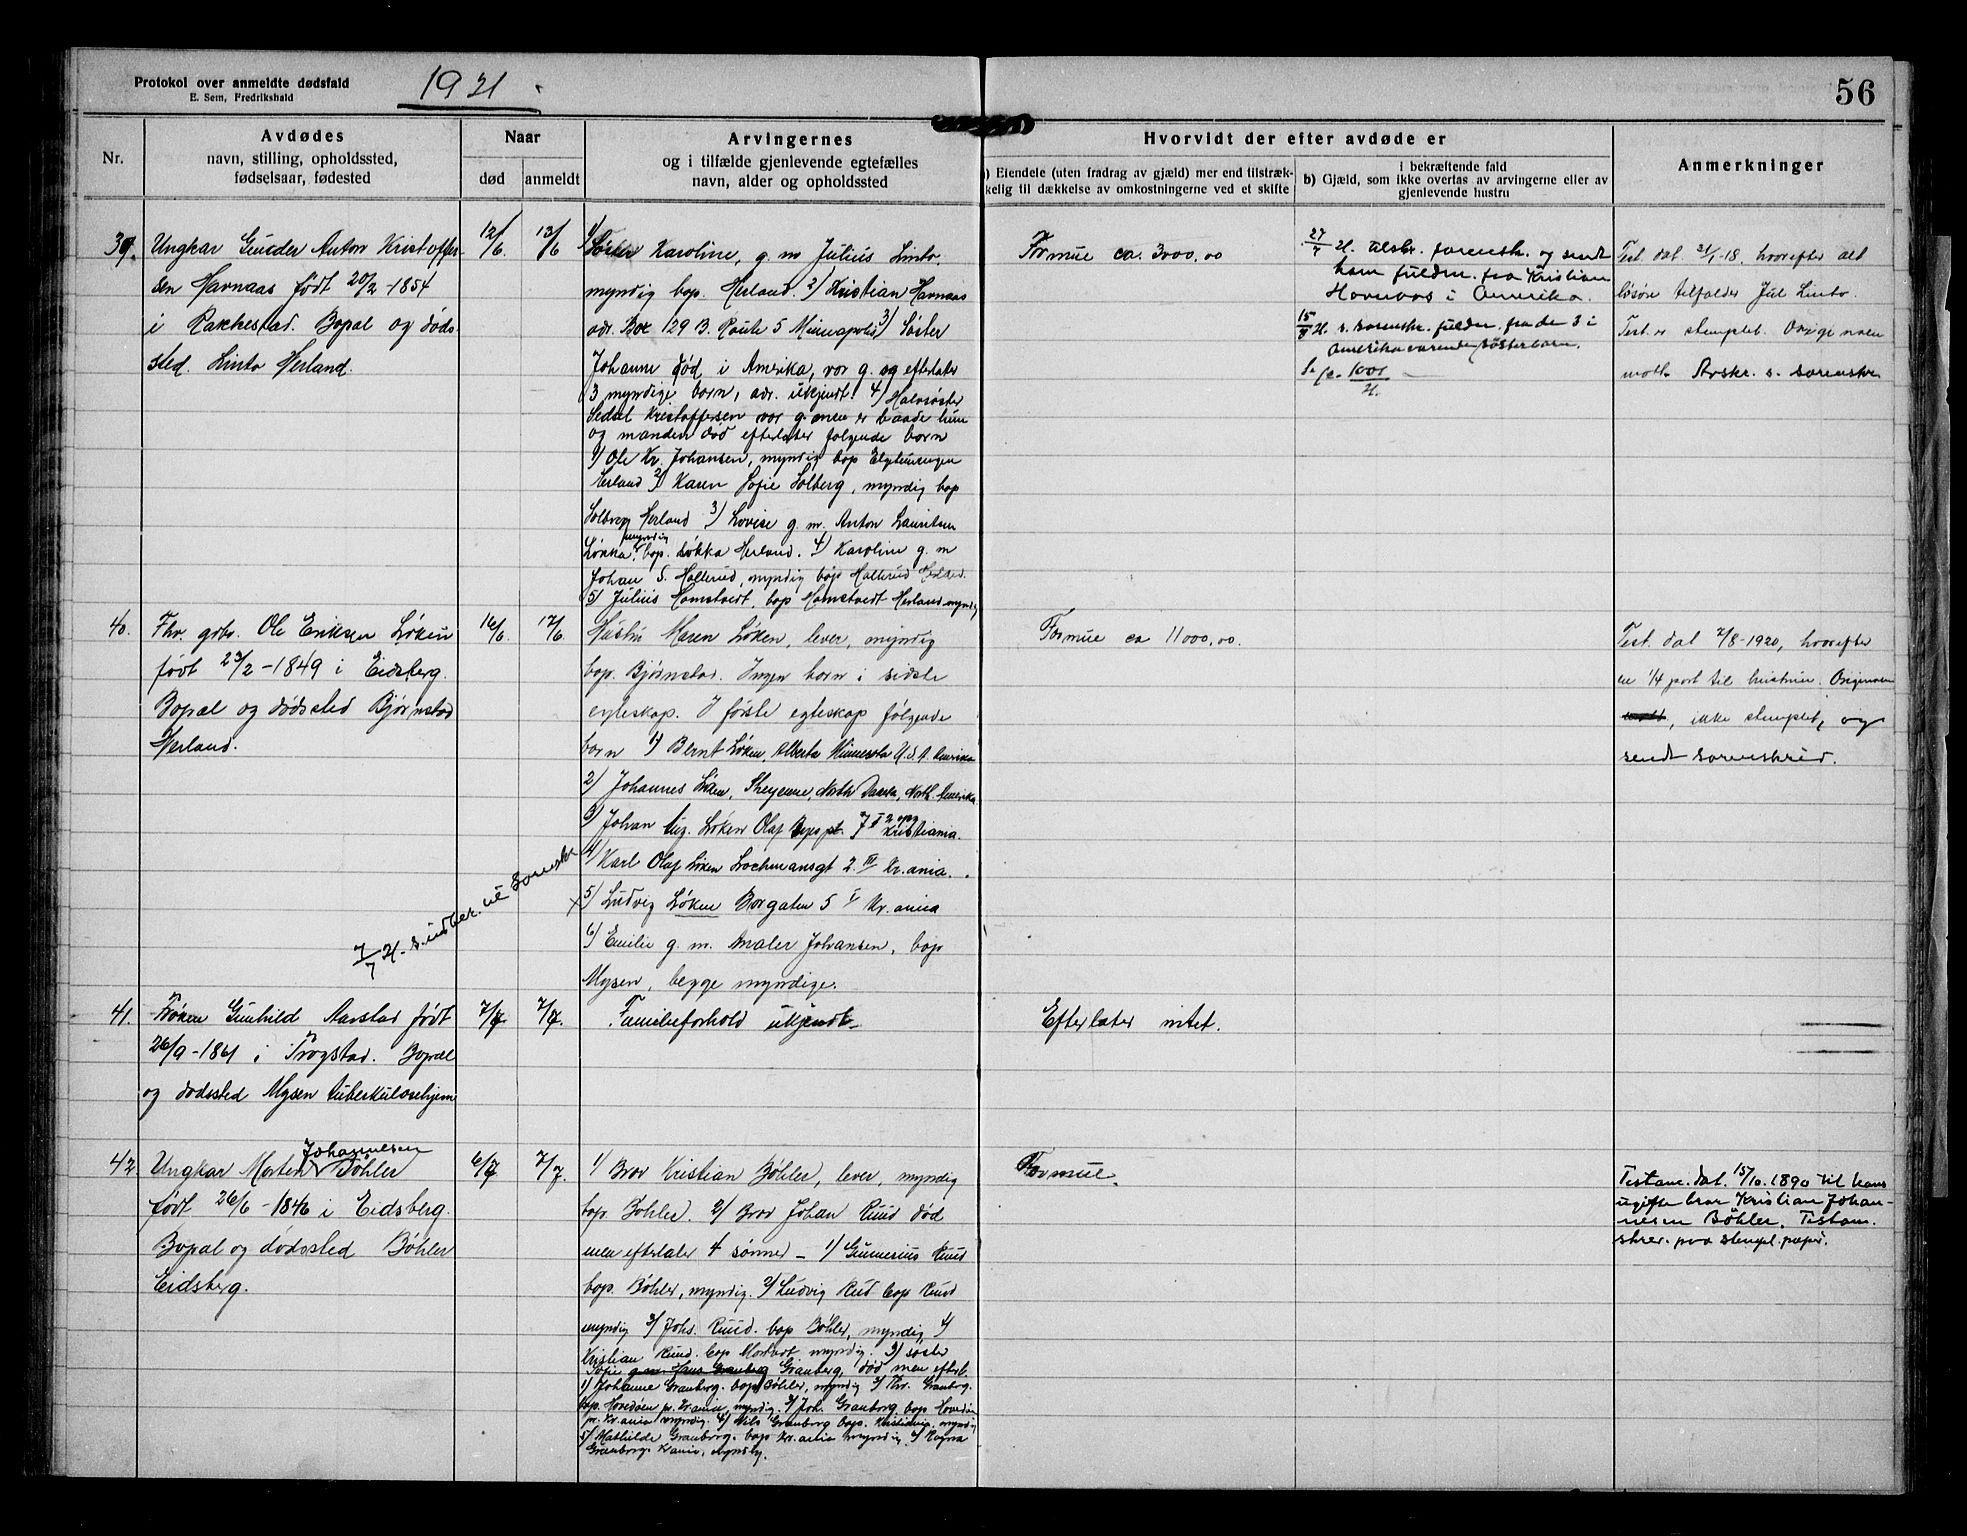 Protokol over anmeldte dødsfald
E. Sem, Fredrikshald
1921.
56
Nr.
Avdødes
navn, stilling, opholdssted,
fødselsaar, fødested
Naar
død
anmeldt
Arvingernes
og i tilfælde gjenlevende egtefælles
navn, alder og opholdssted
Hvorvidt der efter avdøde er
) Eiendele (uten fradrag av gjæld) mer end tilstræk-
kelig til dækkelse av omkostningerne ved et skifte
i bekræftende fald
b) Gjæld, som ikke overtas av arvingerne eller av
gjenlevende hustru
Anmerkninger
39.
Ungkar Gunder Anton Kristoffer-
sen Harnaas født 20/2-1854
i Rakkestad. Bopæl og døds-
sted. Linto Herland.
12/6.
13/6
1) Søster Karoline, g. m Julius Linto
myndig bop. Herland. 2) Kristian Havnaas
adr. Box 129 B. Route 5 Minneapolis 3) Søster
Johanne død i Amerika, var g. og efterlater
3 myndige barn, adr. ukjendt. 4) Halvsøster
Kristoffersen var g. men er baade hun
og manden død efterlater følgende barn
1) Ole Kr. Johansen, myndig bop
Herland 2) Karen Sofie Solberg, myndig bop
Solberg Herland 3) Lovise g. m. Anton Lauritsen
Løkka, myndig bop. Løkka Herland. 4) Karoline g. m
Johan S. Hallerud, myndig bop Hallerud Herland.
5) Julius Homstvedt, bop Homstvedt Herland myndig
Formue ca. 3000,00
27/7 21. avskr. sorenskr. og sendt
ham fuldm. fra Kristian
Havnaas i Amerika.
15/8 21 s. sorenskr. fuldm. fra de 3 i
Amerika værende søsterbarn.
Test. dat. 21/1-18, hvorefter alt
løsøre tilfalder Jul Linto.
Test. er stemplet. Originalen
mott. Avskr. s. sorenskr
40.
Fhv. gdbr. Ole Eriksen Løken
født 23/2-1849 i Eidsberg.
Bopæl og dødssted Bjørnstad
Herland.
16/6.
17/6
Hustru Maren Løken, lever, myndig
bop. Bjørnstad. Ingen barn i sidste
egteskap. I første egteskap følgende
barn 1) Bernt Løken, Alberta Minnesota U.S.A. Amerika
2) Johannes Løken, Sheyenne, North Dakota, North Amerika
3) Johan Aug. Løken Olaf Ryes pl. 7 I 2 opg Kristiania.
4) Karl Olaf Løken Lochmansgt 2. III Kr.ania.
5) Ludvig Løken Borgaten 5 I Kr.ania
6) Emilie g. m. maler Johansen, bop
Mysen, begge myndige.
7/7 21. s. indber. til Sorenskr
Formue ca 11000,00.
Test. dat 2/8-1920, hvorefter
1/4 part til hustruen. Originalen
mott., ikke stemplet, og
sendt sorenskriv.
41.
Frøken Gunhild Aarstad født
26/9-1861 i Trøgstad. Bopæl
og dødssted Mysen tuberkulosehjem
7/7.
7/7.
Familieforhold ukjendt
Efterlater intet.
42
Ungkar Morten Johannesen Bøhler
født 26/6-1846 i Eidsberg.
Bopæl og dødssted Bøhler
Eidsberg.
6/7
7/7.
1) Bror Kristian Bøhler, lever, myndig
bop. Bøhler. 2) Bror Johan Ruud død
men efterlater 4 sønner – 1) Gunerius Ruud
bop. Bøhler, myndig. 2) Ludvig Rud bop Ruud
myndig 3) Johs. Ruud. bop Bøhler, myndig, 4)
Kristian Ruud. bop myndig. 3) søster
Sofie g. m. Hans Granberg Granberg, død men efterl.
1) Johanne Granberg. bop. Bøhler, myndig 2) Kr. Granberg.
bop. Hovedøen pr. Kr.ania, myndig. 3) Joh. Granberg bop Hovedøen
pr. Kr.ania myndig. 4) Nils Granberg bop. myndig
5) Mathilde Granberg. bop Kr.ania myndig. 6) Ragna
Granberg. Kr.ania, myndig.
Formue.
Testam. dat. 15/10. 1890 til hans
ugifte bror Kristian Johan-
nesen Bøhler. Testam.
skrev. paa stempl. papir.